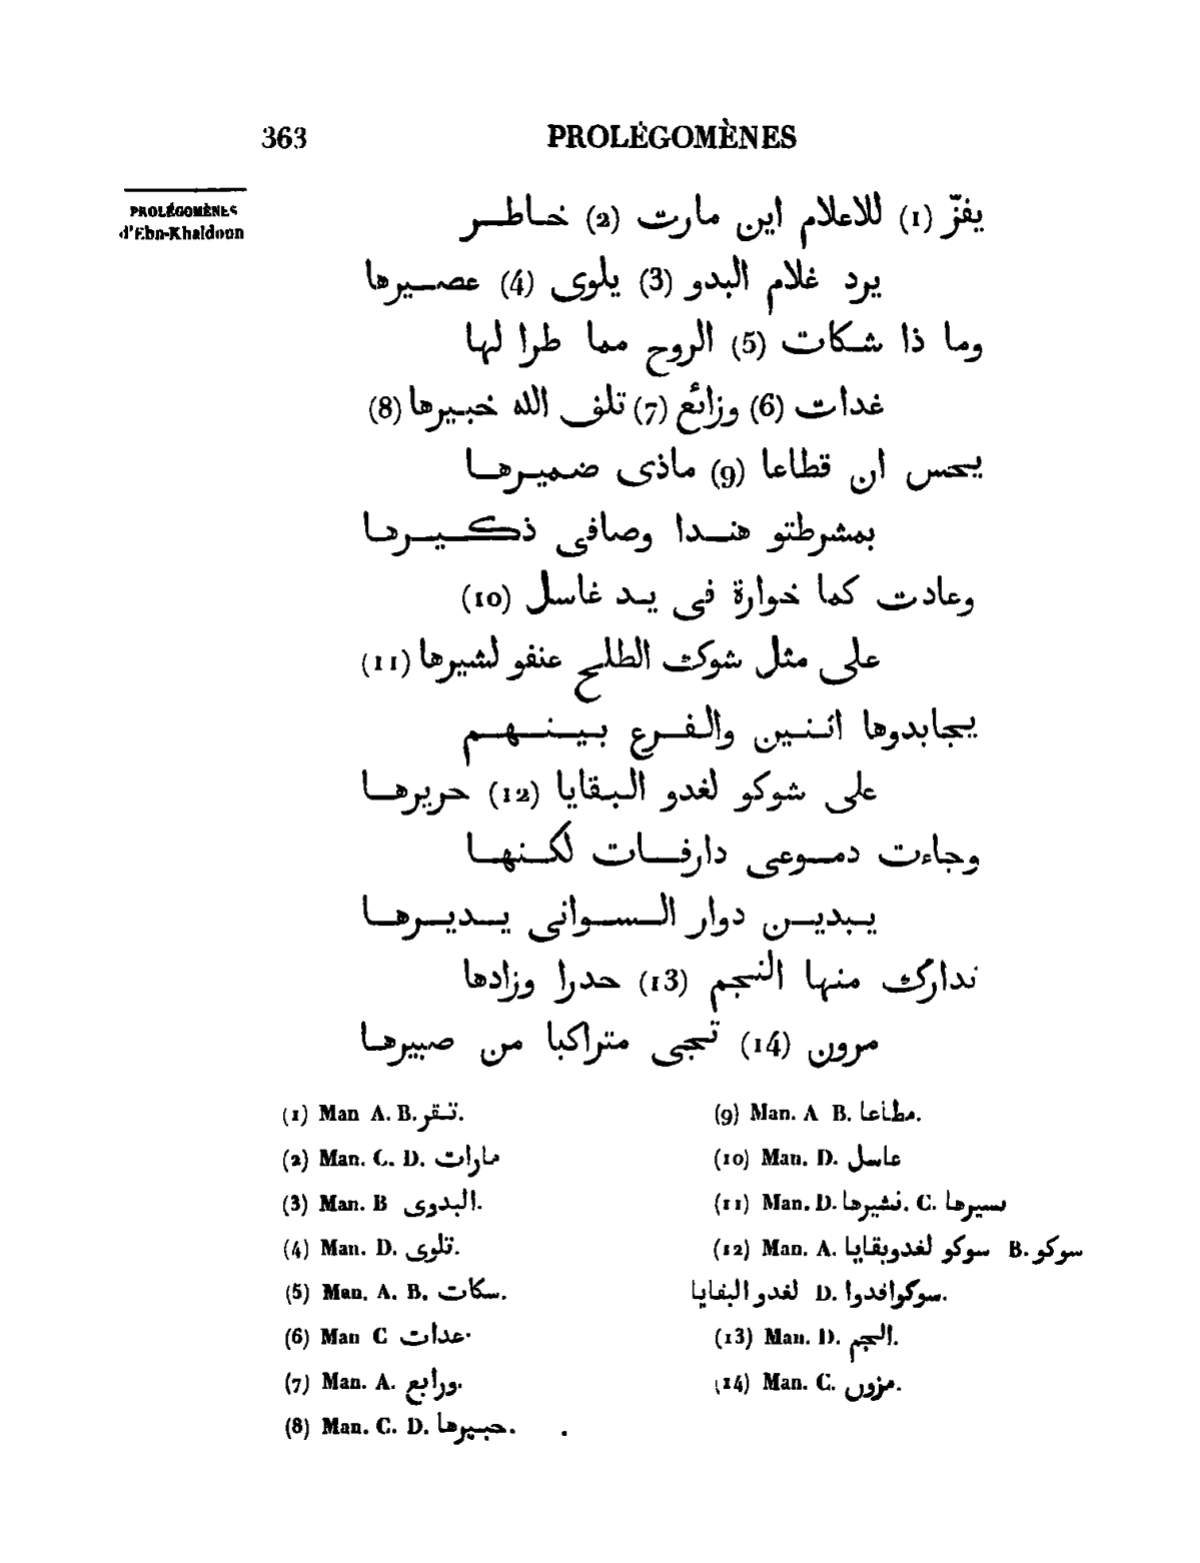 363
PROLÉGOMÈNES
PROLÉGOMÈNES
d'Ebn-Khaldoun
يفزّ (1) للاعلام اين مارت (2) خاطر
يرد غلام البدو (3) يلوى (4) عصيرها
وما ذا شكات (5) الروح مما طرا لها
غدات (6) وزائع (7) تلف الله خبيرها (8)
يحس ان قطاعا (9) ماذى ضميرها
بمشرطتو هندا وصافى ذكيرها
وعادت كما خوارة فى يد غاسل (10)
على مثل شوك الطلح عنفو لشيرها (11)
يجابدوها اثنين والفرع بينهم
على شوكو لغدو البقايا (12) حريرها
وجاءت دموعى دارفات لكنها
يبدين دوار السوانى يديرها
تدارك منها النجم (13) حدرا وزادها
مرون (14) تجى متراكبا من صبيرها
(1) Man A. B. تنقر.
(2) Man. C. D. مارات
(3) Man. B البدوى.
(4) Man. D. تلوى.
(5) Man. A. B. سكات.
(6) Man C عدات.
(7) Man. A. ورابع.
(8) Man. C. D. حبيرها.
(9) Man. A B. مطاعا.
(10) Man. D. عاسل
(11) Man. D. نشيرها. C. بسيرها
(12) Man. A. سوكو لغدوبقايا B. سوكو
لغدو البفايا D. سوكوافدوا.
(13) Man. D. الجم.
(14) Man. C. مزون.